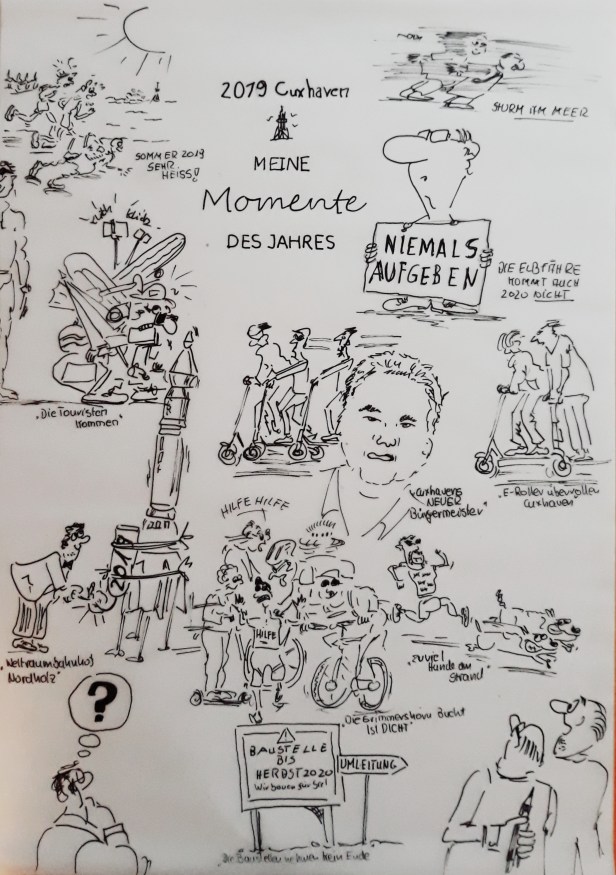 2019 Cuxhaven
MEINE
Momente
DES JAHRES
STURM IM MEER
SOMMER 2019
SEHR
HEISS!
NIEMALS
AUFGEBEN
DIE ELBFÄHRE
KOMMT AUCH
2020 NICHT
"Die Touristen
kommen"
Cuxhavens
NEUER
Bürgermeister"
"E-Roller überrollen
Cuxhaven"
HILFE HILFE
2019
HILFE
"Weltraumbahnhof
Nordholz"
"zuviel
Hunde am
Strand"
"Die Grimmershörn Bucht
ist DICHT"
?
BAUSTELLE
BIS
HERBST 2020
Wir bauen für Sie!
UMLEITUNG
"Die Baustellen nehmen kein Ende